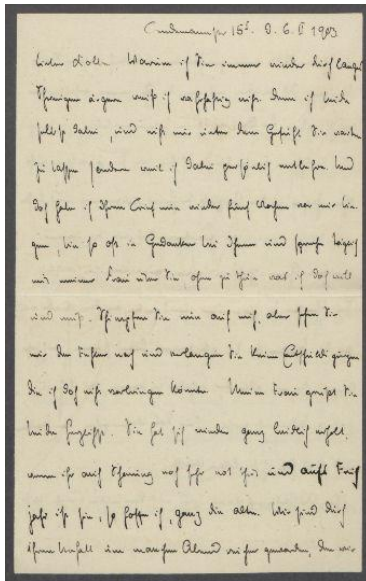 Lindemannstr 15I. D. 6. II 1903
Lieber Dolle Warum ich Sie immer wieder durch langes
Schweigen ärgere weiß ich wahrhaftig nicht. Denn ich leide
selbst dabei, und nicht nur unter dem Gefühl Sie warten
zu lassen sondern weil ich dabei persönlich entbehre. Und
doch habe ich Ihren Brief nun wieder fünf Wochen vor mir lie-
gen, bin so oft in Gedanken bei Ihnen und spreche täglich
mit meiner Frau über Sie, ohne zu thun was ich doch will
und muß. Schimpfen Sie nun auf mich, aber sehen Sie
mir den Fehler nach und verlangen Sie keine Entschuldigungen
die ich doch nicht vorbringen könnte. Meine Frau grüßt Sie
beide herzlichst. Sie hat sich wieder ganz leidlich erholt,
wenn ihr auch Schonung noch sehr not thut und aufs Früh
jahr ist sie, so hoffe ich, ganz die alte. Wir sind durch
ihren Unfall um manchen Abend reicher geworden, den wir